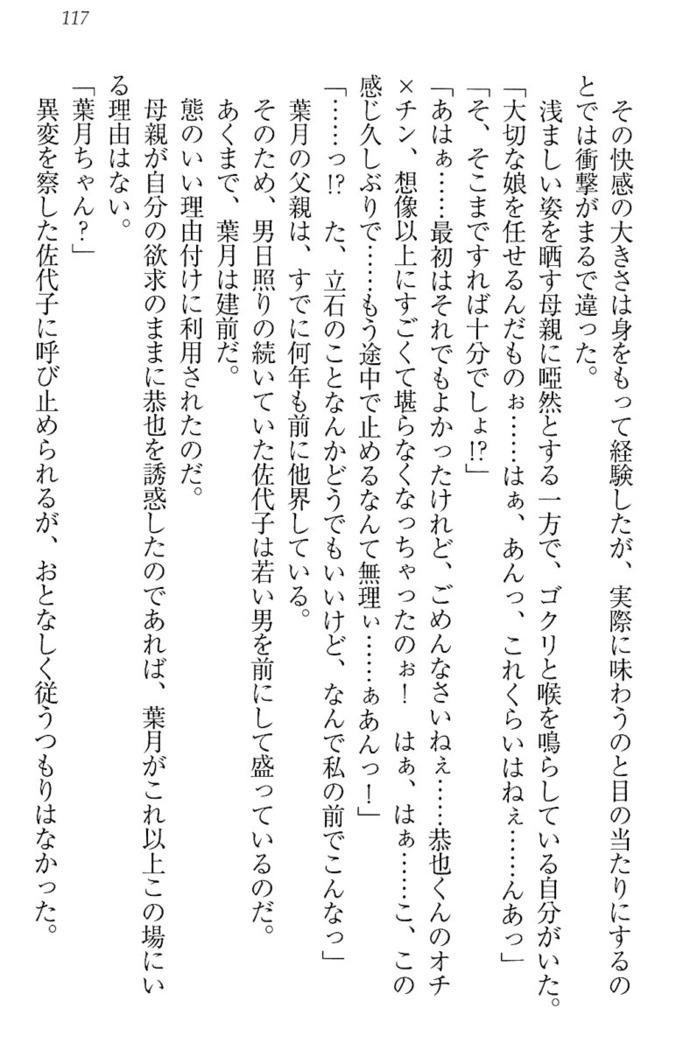 117
その快感の大きさは身をもって経験したが、実際に味わうのと目の当たりにするの
とでは衝撃がまるで違った。
浅ましい姿を晒す母親に啞然とする一方で、ゴクリと喉を鳴らしている自分がいた。
「大切な娘を任せるんだものぉ……はぁ、あんっ、これくらいはねぇ……んあっ」
「そ、そこまですれば十分でしょ!?」
「あはぁ……最初はそれでもよかったけれど、ごめんなさいねぇ……恭也くんのオチ
×チン、想像以上にすごくて堪らなくなっちゃったのぉ！　はぁ、はぁ……こ、この
感じ久しぶりで……もう途中で止めるなんて無理ぃ……ぁあんっ！」
「……っ!?　た、立石のことなんかどうでもいいけど、なんで私の前でこんなっ」
葉月の父親は、すでに何年も前に他界している。
そのため、男日照りの続いていた佐代子は若い男を前にして盛っているのだ。
あくまで、葉月は建前だ。
態のいい理由付けに利用されたのだ。
母親が自分の欲求のままに恭也を誘惑したのであれば、葉月がこれ以上この場にい
る理由はない。
「葉月ちゃん？」
異変を察した佐代子に呼び止められるが、おとなしく従うつもりはなかった。